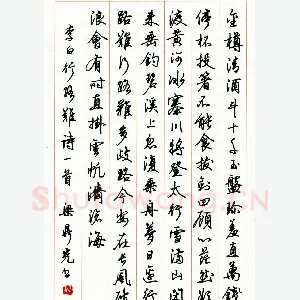 金樽清酒斗十千玉盤珍羞直萬錢
停杯投箸不能食拔劍四顧心茫然欲
渡黃河冰塞川將登太行雪滿山閑
來垂釣碧溪上忽復乘舟夢日邊行
路難行路難多歧路今安在長風破
浪會有時直掛雲帆濟滄海
李白行路難詩一首 梁鼎光書